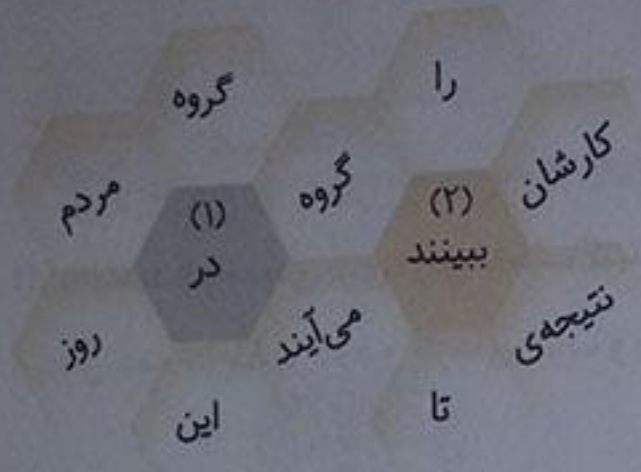 گروه
را
مردم
گروه
کارشان
(۱)
در
(۲)
ببینند
روز
می‌آیند
نتیجه‌ی
این
تا